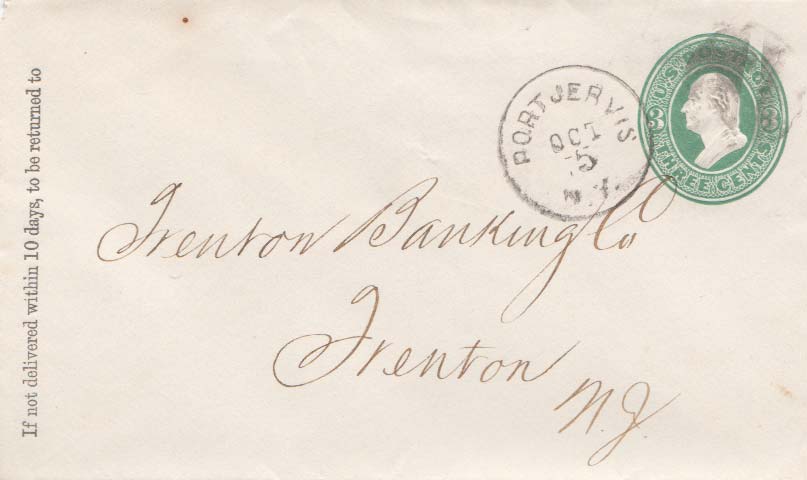 If not delivered within 10 days, to be returned to
PORT JERVIS
OCT
5
N.Y.
U.S. POSTAGE
3 3
THREE CENTS
Trenton Banking Co
Trenton
N.J.